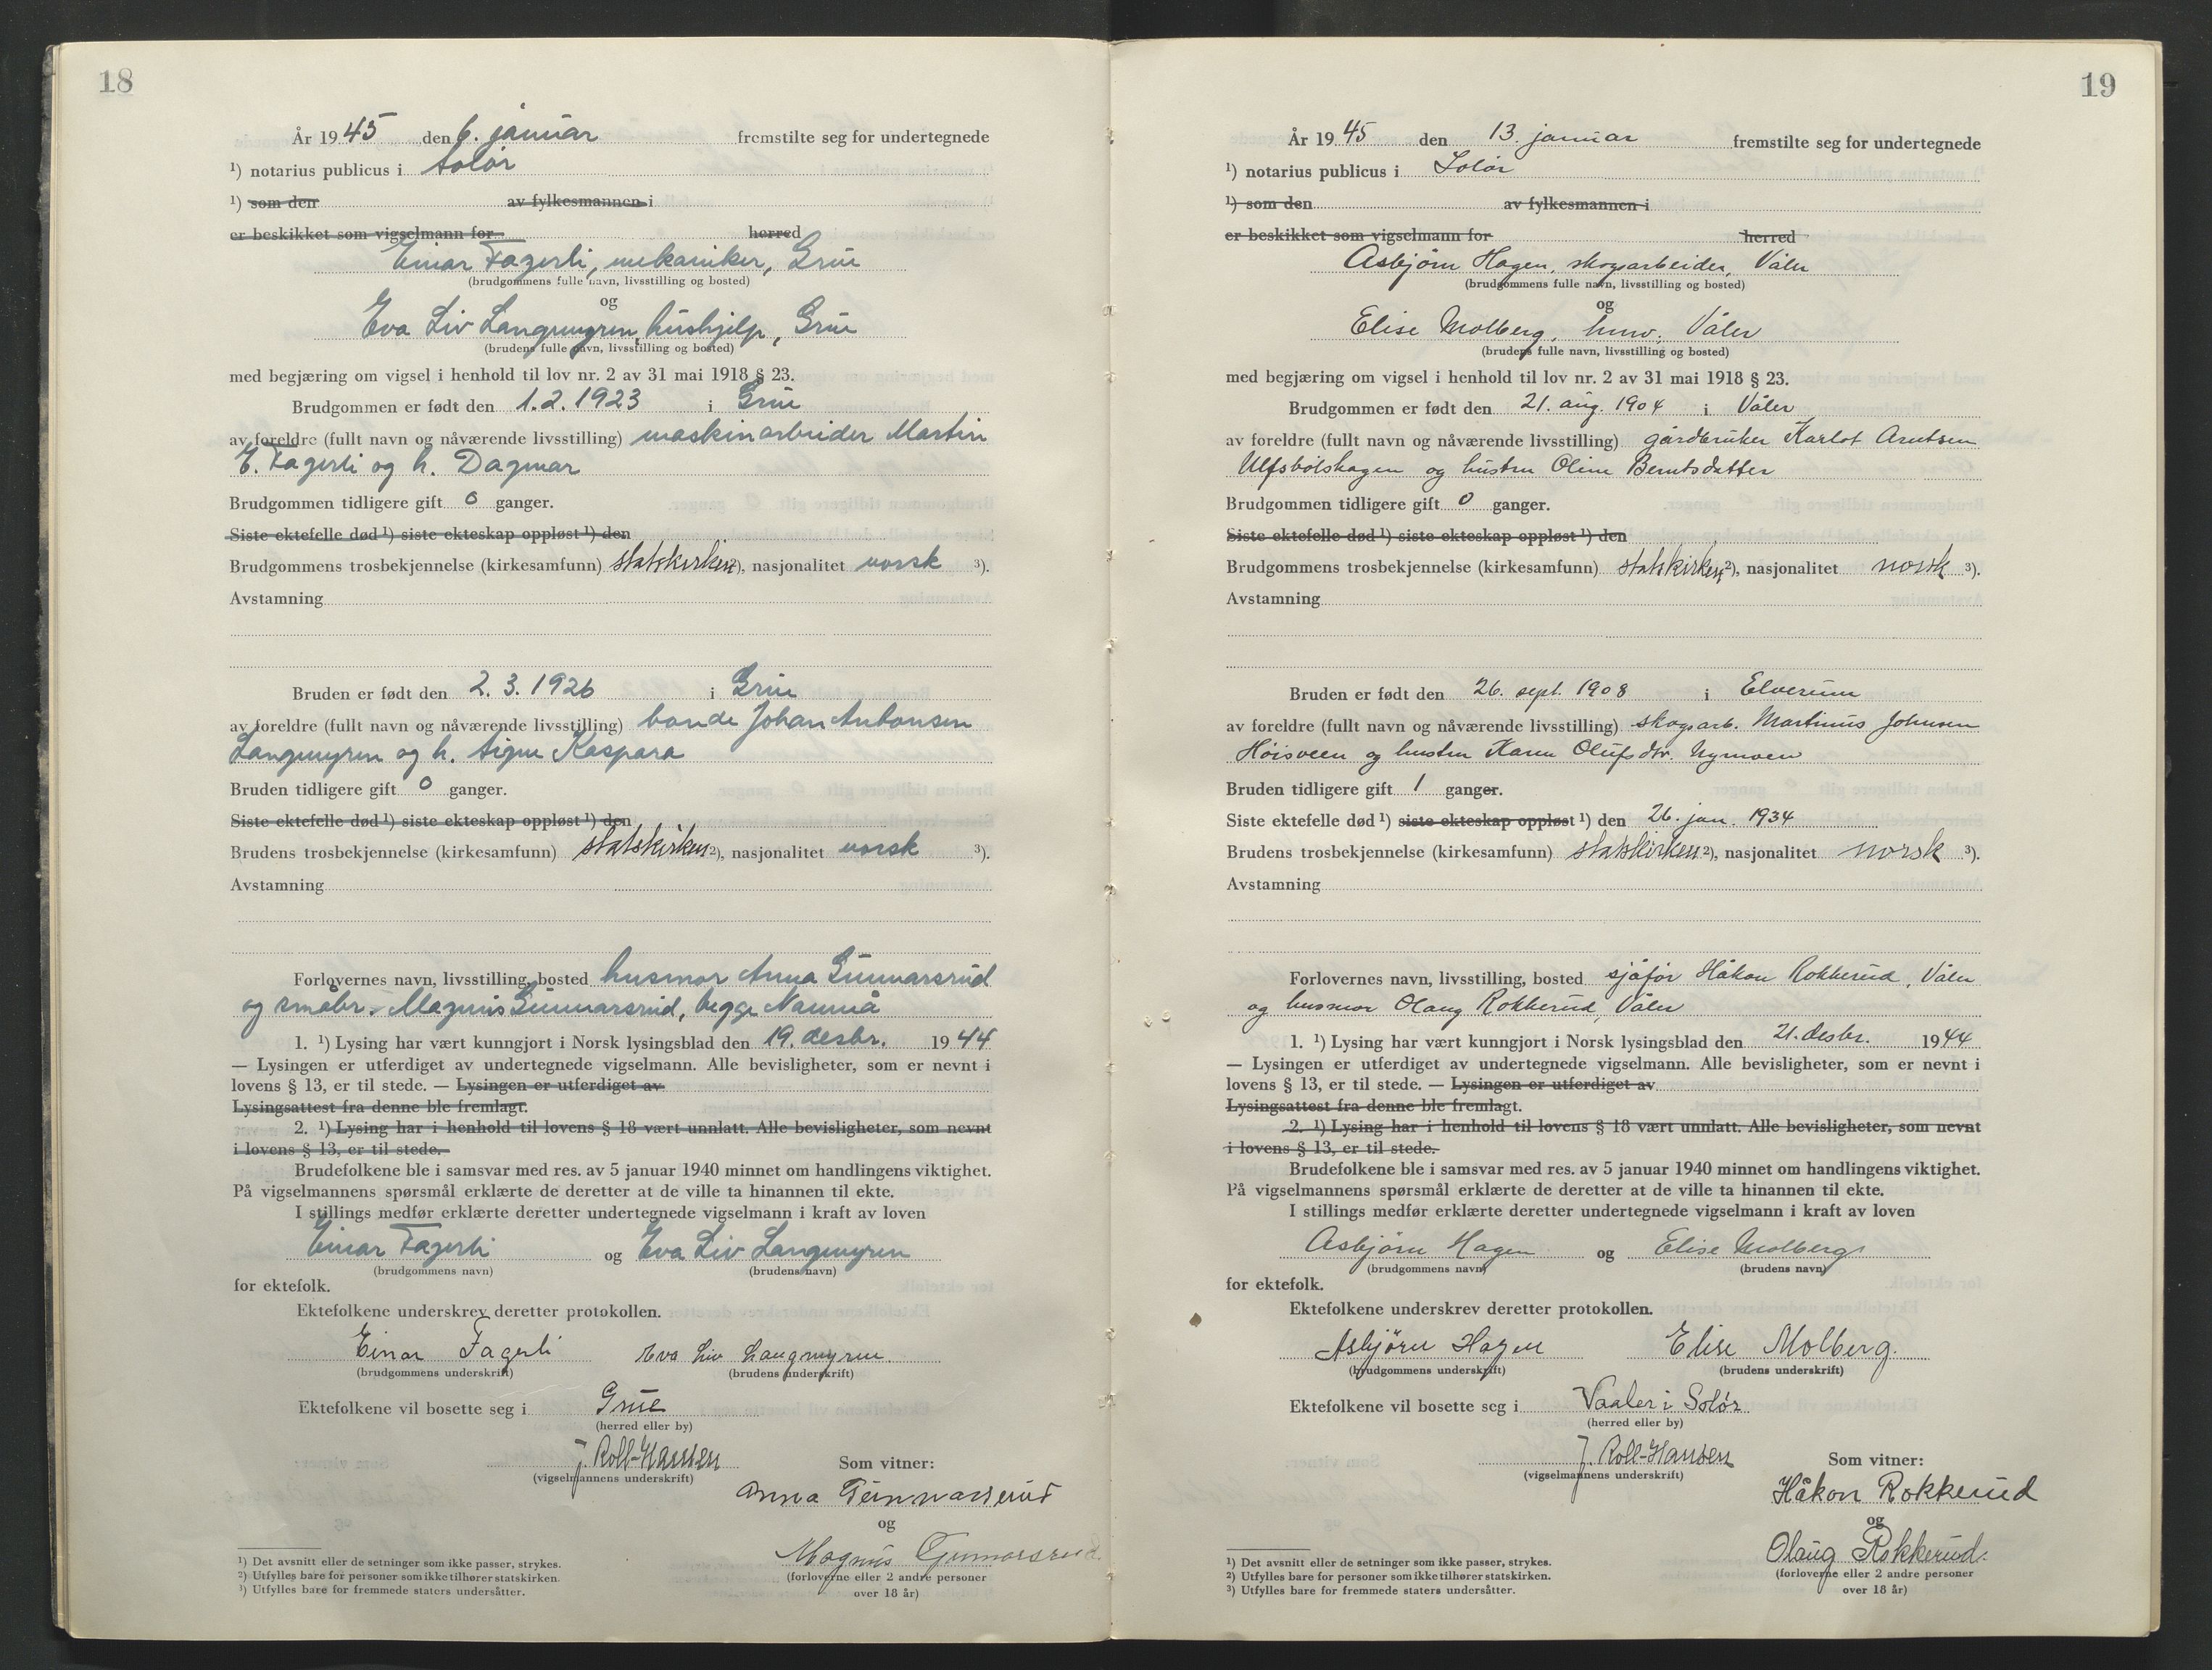 18
År 1945 den 6. januar fremstilte seg for undertegnede
¹) notarius publicus i Solør
¹) som den av fylkesmannen i
er beskikket som vigselmann for herred
Einar Fagerli, mekaniker, Grue
(brudgommens fulle navn, livsstilling og bosted)
og
Eva Liv Langmyren, hushjelp, Grue
(brudens fulle navn, livsstilling og bosted)
med begjæring om vigsel i henhold til lov nr. 2 av 31 mai 1918 § 23.
Brudgommen er født den 1.2.1923 i Grue
av foreldre (fullt navn og nåværende livsstilling) maskinarbeider Martin
E. Fagerli og h. Dagmar
Brudgommen tidligere gift 0 ganger.
Siste ektefelle død ¹) siste ekteskap oppløst ¹) den
Brudgommens trosbekjennelse (kirkesamfunn) statskirken ²), nasjonalitet norsk ³).
Avstamning
Bruden er født den 2.3.1926 i Grue
av foreldre (fullt navn og nåværende livsstilling) bonde Johan Antonsen
Langmyren og h. Signe Kaspara
Bruden tidligere gift 0 ganger.
Siste ektefelle død ¹) siste ekteskap oppløst ¹) den
Brudens trosbekjennelse (kirkesamfunn) statskirken ²), nasjonalitet norsk ³).
Avstamning
Forlovernes navn, livsstilling, bosted husmor Anna Gunnarsrud
og småbr. Magnus Gunnarsrud, begge Namnå
1. ¹) Lysing har vært kunngjort i Norsk lysingsblad den 19. desbr. 1944
— Lysingen er utferdiget av undertegnede vigselmann. Alle bevisligheter, som er nevnt i
lovens § 13, er til stede. — Lysingen er utferdiget av
Lysingsattest fra denne ble fremlagt.
2. ¹) Lysing har i henhold til lovens § 18 vært unnlatt. Alle bevisligheter, som nevnt
i lovens § 13, er til stede.
Brudefolkene ble i samsvar med res. av 5 januar 1940 minnet om handlingens viktighet.
På vigselmannens spørsmål erklærte de deretter at de ville ta hinannen til ekte.
I stillings medfør erklærte deretter undertegnede vigselmann i kraft av loven
Einar Fagerli og Eva Liv Langmyren
(brudgommens navn) (brudens navn)
for ektefolk.
Ektefolkene underskrev deretter protokollen.
Einar Fagerli Eva Liv Langmyren.
(brudgommens underskrift) (brudens underskrift)
Ektefolkene vil bosette seg i Grue
(herred eller by)
J. Roll-Hansen Som vitner:
(vigselmannens underskrift)
Anna Gunnarsrud
og
Magnus Gunnarsrud
(forloverne eller 2 andre personer
over 18 år)
¹) Det avsnitt eller de setninger som ikke passer, strykes.
²) Utfylles bare for personer som ikke tilhører statskirken.
³) Utfylles bare for fremmede staters undersåtter.
19
År 1945 den 13. januar fremstilte seg for undertegnede
¹) notarius publicus i Solør
¹) som den av fylkesmannen i
er beskikket som vigselmann for herred
Asbjørn Hagen, skogsarbeider, Våler
(brudgommens fulle navn, livsstilling og bosted)
og
Elise Molberg, husv., Våler
(brudens fulle navn, livsstilling og bosted)
med begjæring om vigsel i henhold til lov nr. 2 av 31 mai 1918 § 23.
Brudgommen er født den 21. aug. 1904 i Våler
av foreldre (fullt navn og nåværende livsstilling) gårdbruker Karlot Arntsen
Ulfsbølshagen og hustru Oline Berntsdatter
Brudgommen tidligere gift 0 ganger.
Siste ektefelle død ¹) siste ekteskap oppløst ¹) den
Brudgommens trosbekjennelse (kirkesamfunn) statskirken ²), nasjonalitet norsk ³).
Avstamning
Bruden er født den 26. sept. 1908 i Elverum
av foreldre (fullt navn og nåværende livsstilling) skogsarb. Martinus Johnsen
Høisveen og hustru Karen Olufsdtr. Nymoen
Bruden tidligere gift 1 ganger.
Siste ektefelle død ¹) siste ekteskap oppløst ¹) den 26. jan. 1934
Brudens trosbekjennelse (kirkesamfunn) statskirken ²), nasjonalitet norsk ³).
Avstamning
Forlovernes navn, livsstilling, bosted sjåfør Håkon Rokkerud, Våler
og husmor Olaug Rokkerud, Våler
1. ¹) Lysing har vært kunngjort i Norsk lysingsblad den 21. desbr. 1944
— Lysingen er utferdiget av undertegnede vigselmann. Alle bevisligheter, som er nevnt i
lovens § 13, er til stede. — Lysingen er utferdiget av
Lysingsattest fra denne ble fremlagt.
2. ¹) Lysing har i henhold til lovens § 18 vært unnlatt. Alle bevisligheter, som nevnt
i lovens § 13, er til stede.
Brudefolkene ble i samsvar med res. av 5 januar 1940 minnet om handlingens viktighet.
På vigselmannens spørsmål erklærte de deretter at de ville ta hinannen til ekte.
I stillings medfør erklærte deretter undertegnede vigselmann i kraft av loven
Asbjørn Hagen og Elise Molberg
(brudgommens navn) (brudens navn)
for ektefolk.
Ektefolkene underskrev deretter protokollen.
Asbjørn Hagen Elise Molberg.
(brudgommens underskrift) (brudens underskrift)
Ektefolkene vil bosette seg i Vaaler i Solør
(herred eller by)
J. Roll-Hansen Som vitner:
(vigselmannens underskrift)
Håkon Rokkerud
og
Olaug Rokkerud.
(forloverne eller 2 andre personer
over 18 år)
¹) Det avsnitt eller de setninger som ikke passer, strykes.
²) Utfylles bare for personer som ikke tilhører statskirken.
³) Utfylles bare for fremmede staters undersåtter.